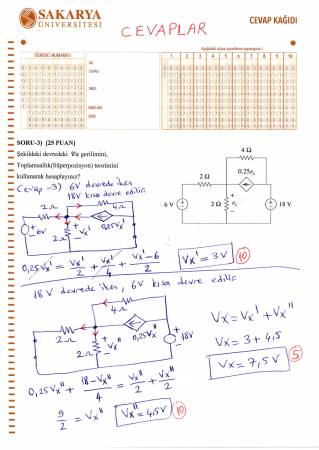 SAKARYA
ÜNİVERSİTESİ
CEVAPLAR
CEVAP KAĞIDI
ÖĞRENCİ NUMARASI
1 2 3 4 5 6 7 8 9 10
SORU-3) [25 PUAN]
Şekildeki devredeki ϑx gerilimini,
Toplamsallık(Süperpozisyon) teorimini
kullanarak hesaplayınız?
4 Ω
2 Ω
0.25υx
6 V
2 Ω
υx
18 V
Cevap-3) 6V devrede iken
18V kısa devre edilir.
2Ω
4Ω
6V
2Ω
Vx'
0,25Vx'
0,25Vx' = Vx'/2 + Vx'/4 + Vx'-6/2
Vx' = 3V
10
18V devrede iken, 6V kısa devre edilir.
2Ω
4Ω
2Ω
Vx''
0,25Vx''
18V
0,25Vx'' + 18-Vx''/4 = Vx''/2 + Vx''/2
9/2 = Vx''
Vx'' = 4,5V
10
Vx = Vx' + Vx''
Vx = 3 + 4,5
Vx = 7,5V
5